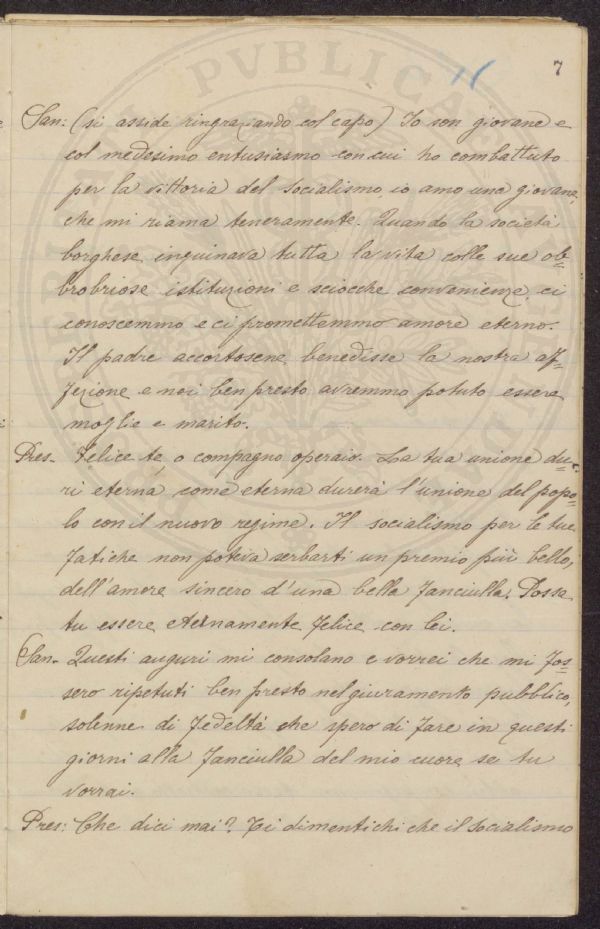 7
San: (si asside ringraziando col capo) Io son giovane e
col medesimo entusiasmo con cui ho combattuto
per la vittoria del socialismo, io amo una giovane,
che mi riama teneramente. Quando la società
borghese inquinava tutta la vita colle sue ob-
brobriose istituzioni e sciocche convenienze, ci
conoscemmo e ci promettemmo amore eterno.
Il padre accortosene, benedisse la nostra af-
fezione e noi ben presto avremmo potuto essere
moglie e marito.
Pres. Felice te, o compagno operaio. La tua unione du-
ri eterna come eterna durerà l'unione del popo-
lo con il nuovo regime. Il socialismo per le tue
fatiche non poteva serbarti un premio più bello,
dell'amore sincero d'una bella fanciulla. Possa
tu essere eternamente felice con lei.
San- Questi auguri mi consolano e vorrei che mi fos-
sero ripetuti ben presto nel giuramento pubblico,
solenne di fedeltà che spero di fare in questi
giorni alla fanciulla del mio cuore se tu
vorrai.
Pres: Che dici mai? Ti dimentichi che il socialismo
PVBLICA